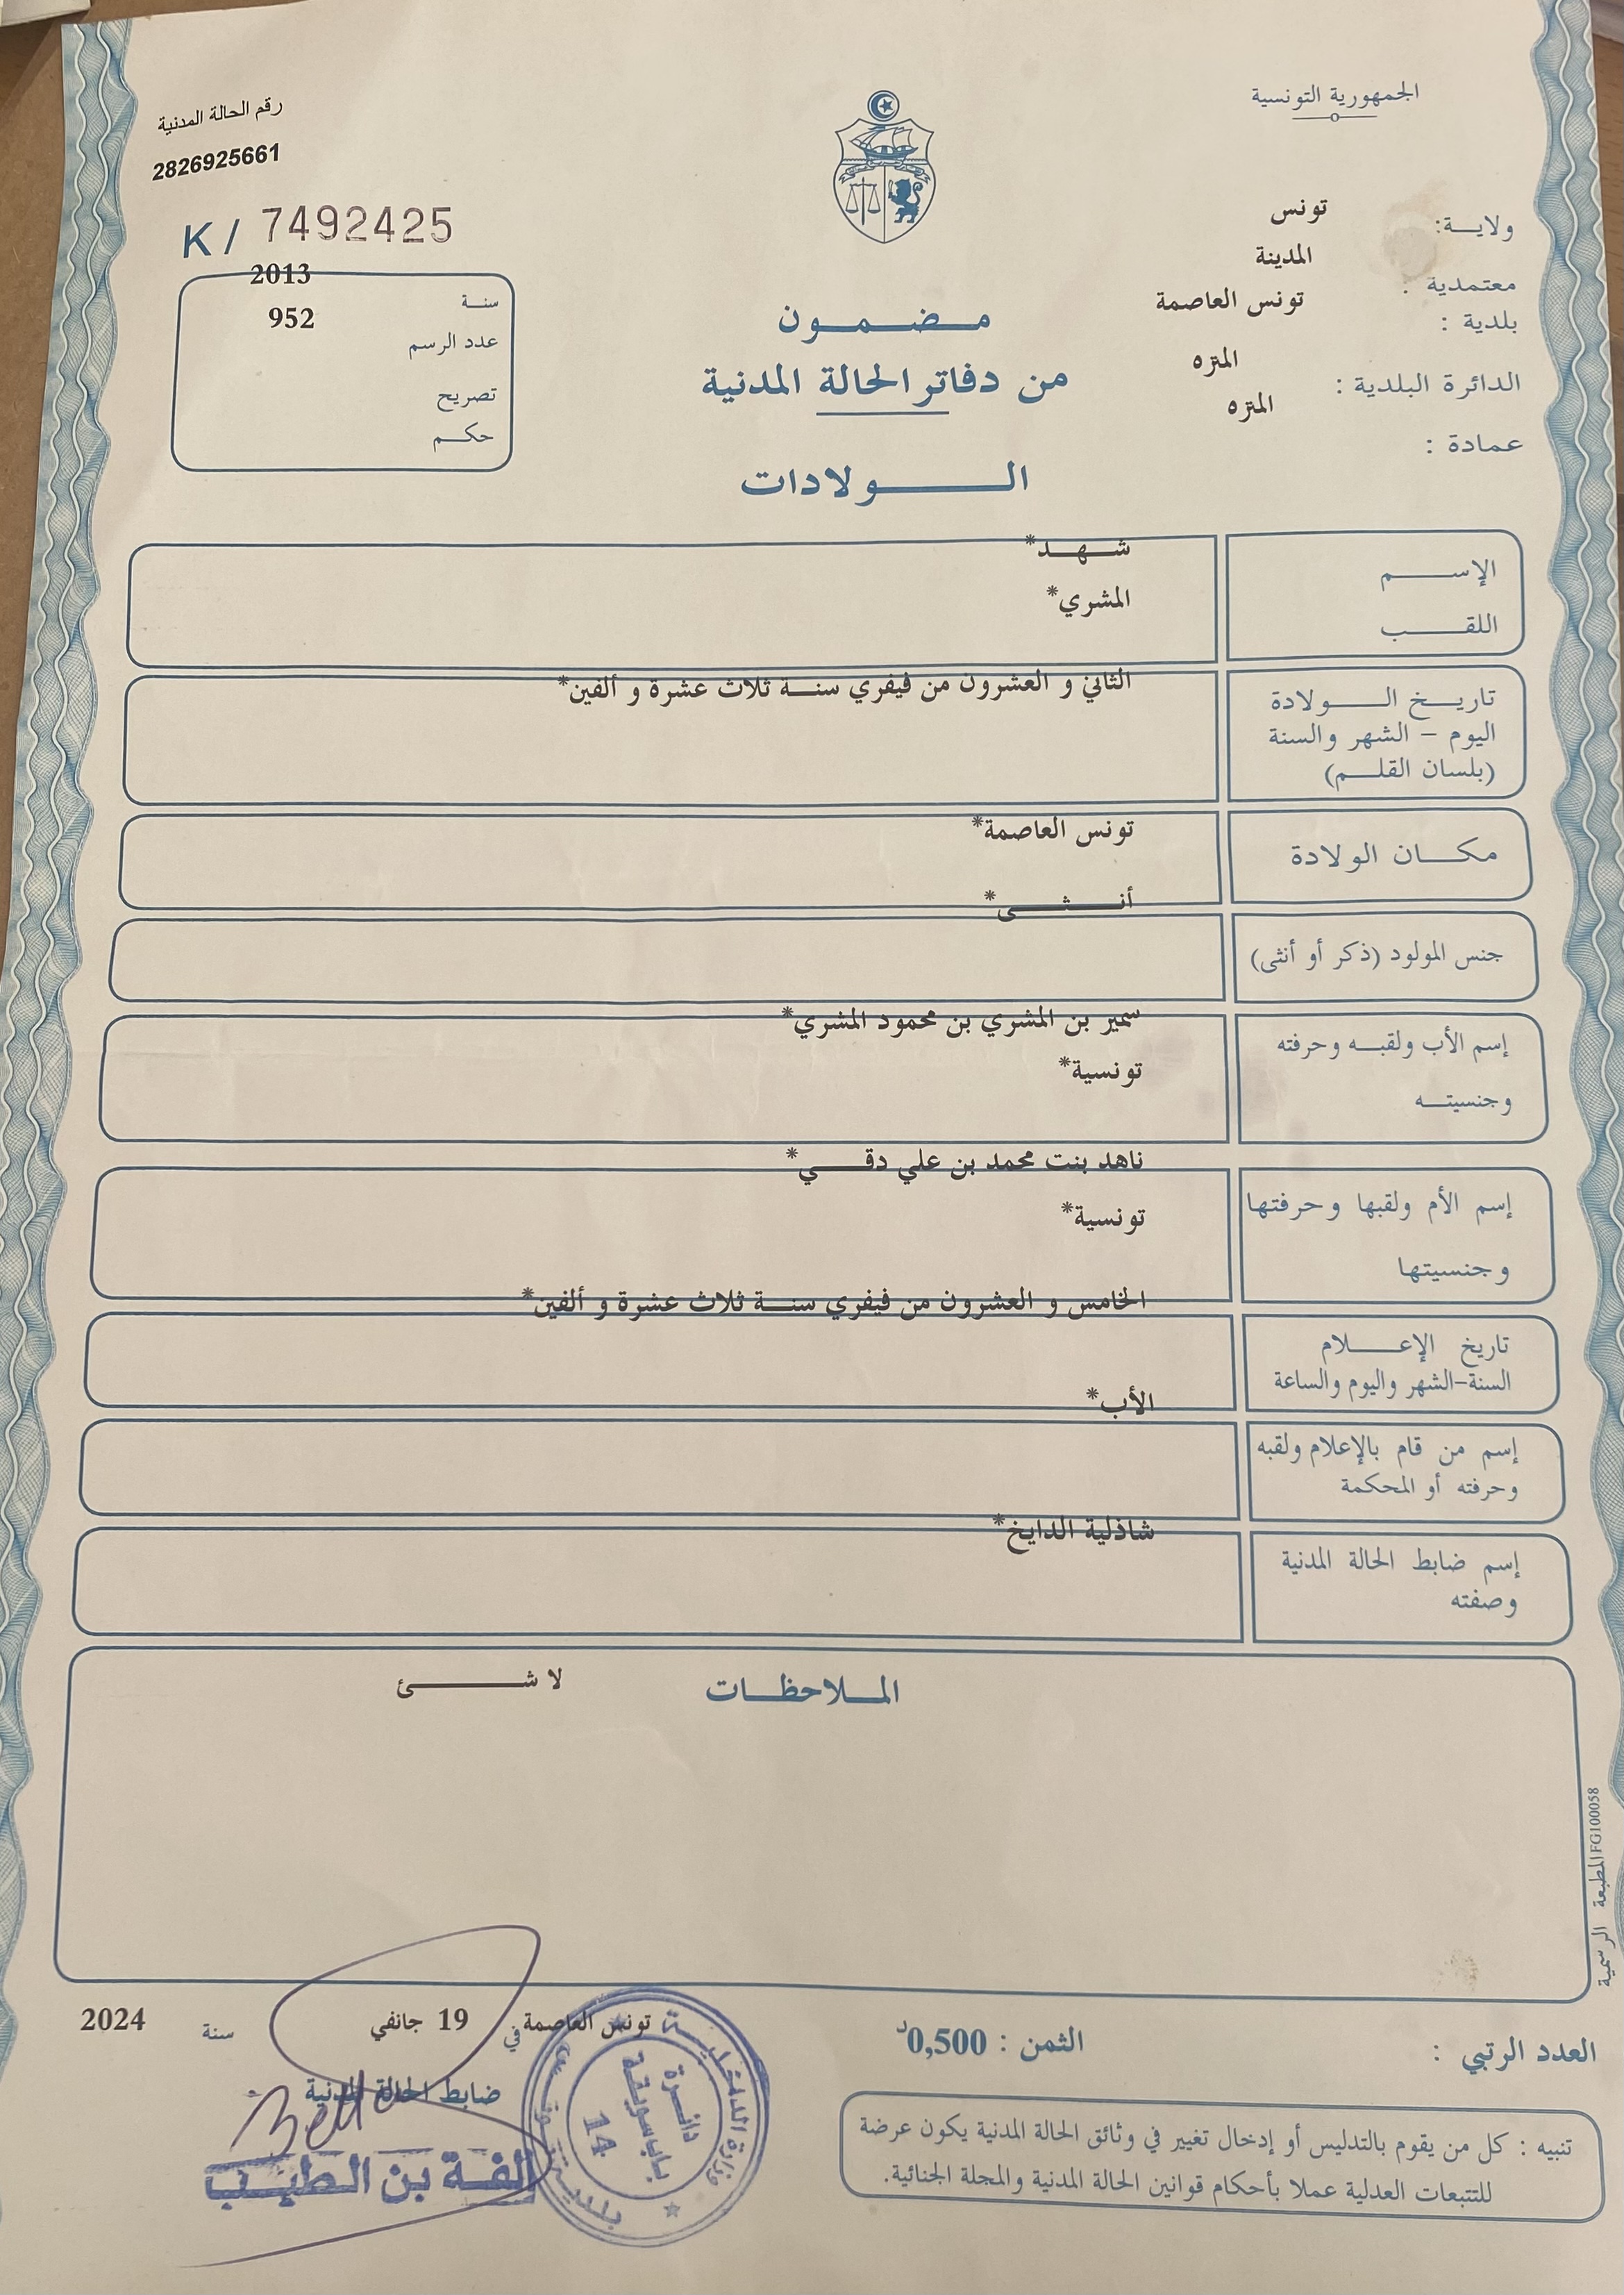 الجمهورية التونسية
رقم الحالة المدنية
2826925661
K / 7492425
ولايــة: تونس
معتمدية : المدينة
بلدية : تونس العاصمة
الدائرة البلدية : المنزه
عمادة : المنزه
سنــة 2013
عدد الرسم 952
تصريح
حكــم
مــضــمــون
من دفاتر الحالة المدنية
الـــــولادات
الإســـــم شـــهـــد*
اللقــــب المشري*
تاريــخ الـــــولادة الثاني و العشرون من فيفري سنـــة ثلاث عشرة و ألفين*
اليوم – الشهر والسنة
(بلسان القلــم)
مكـــان الولادة تونس العاصمة*
جنس المولود (ذكر أو أنثى) أنـــــثـــــى*
إسم الأب ولقبــه وحرفته سمير بن المشري بن محمود المشري*
وجنسيتــه تونسية*
إسم الأم ولقبها وحرفتها ناهد بنت محمد بن علي دقــــي*
وجنسيتها تونسية*
تاريخ الإعـــــلام الخامس و العشرون من فيفري سنـــة ثلاث عشرة و ألفين*
السنة-الشهر واليوم والساعة
إسم من قام بالإعلام ولقبه الأب*
وحرفته أو المحكمة
إسم ضابط الحالة المدنية شاذلية الدايخ*
وصفته
المــلاحظــات لا شـــــــئ
المطبعة الرسمية FG100058
العدد الرتبي :
الثمن : 0,500د
تونس العاصمة في 19 جانفي سنة 2024
ضابط الحالة المدنية
الفـة بن الـطيـب
وزارة الداخليـــة
بلديـة تونـس
دائـرة
باب سويقـة
14
تنبيه : كل من يقوم بالتدليس أو إدخال تغيير في وثائق الحالة المدنية يكون عرضة
للتتبعات العدلية عملا بأحكام قوانين الحالة المدنية والمجلة الجنائية.